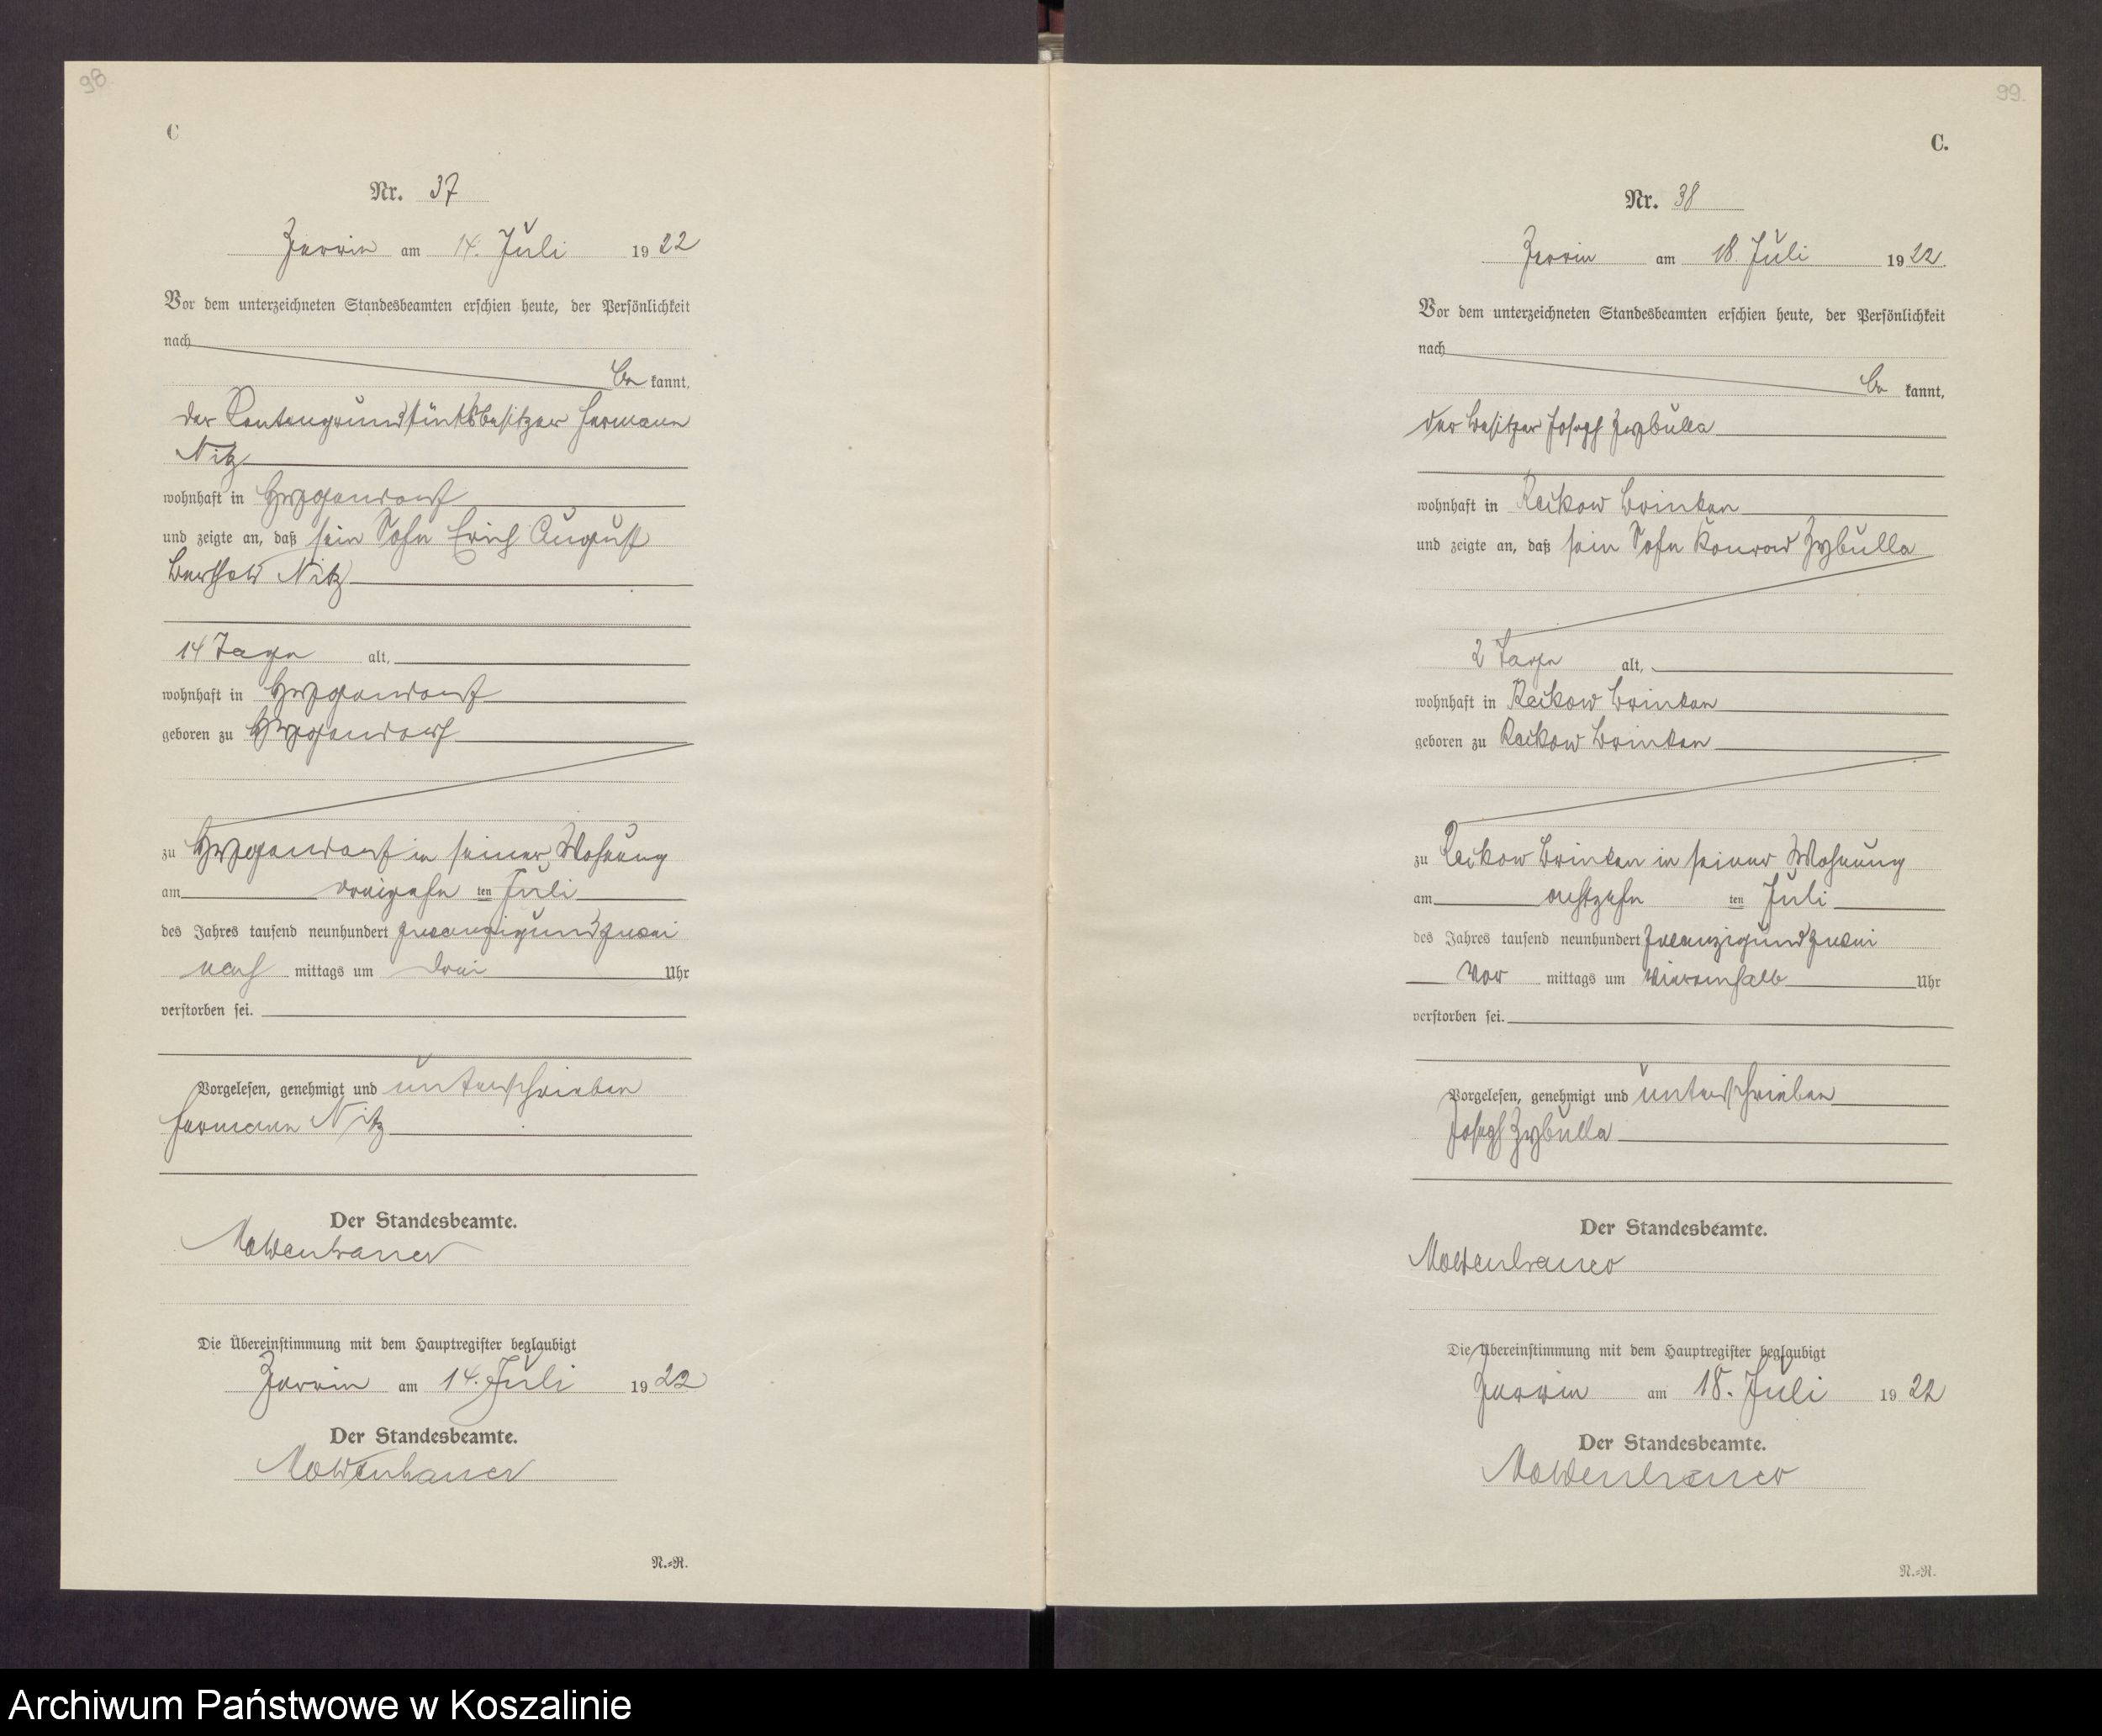 98
C
Nr. 37
Zerrin am 14. Juli 1922
Vor dem unterzeichneten Standesbeamten erschien heute, der Persönlichkeit
nach
be kannt,
der Rentengrundstücksbesitzer Hermann
Nitz
wohnhaft in
und zeigte an, daß sein Sohn Erich August
Berthold Nitz
14 Tage alt,
wohnhaft in
geboren zu
zu in seiner Wohnung
am dreizehn ten Juli
des Jahres tausend neunhundert zwanzigundzwei
nach mittags um drei Uhr
verstorben sei.
Vorgelesen, genehmigt und unterschrieben
Hermann Nitz
Der Standesbeamte.
Moldenhauer
Die Übereinstimmung mit dem Hauptregister beglaubigt
Zerrin am 14. Juli 1922
Der Standesbeamte.
Moldenhauer
N.=R.
99.
C.
Nr. 38
Zerrin am 18. Juli 1922.
Vor dem unterzeichneten Standesbeamten erschien heute, der Persönlichkeit
nach
be kannt,
der Besitzer Joseph Zybulla
wohnhaft in Reckow
und zeigte an, daß sein Sohn Konrad Zybulla
2 Tage alt,
wohnhaft in Reckow
geboren zu Reckow
zu Reckow in seiner Wohnung
am achtzehn ten Juli
des Jahres tausend neunhundert zwanzigundzwei
Vor mittags um viereinhalb Uhr
verstorben sei.
Vorgelesen, genehmigt und unterschrieben
Joseph Zybulla
Der Standesbeamte.
Moldenhauer
Die Übereinstimmung mit dem Hauptregister beglaubigt
Zerrin am 18. Juli 1922
Der Standesbeamte.
Moldenhauer
N.=R.
Archiwum Państwowe w Koszalinie